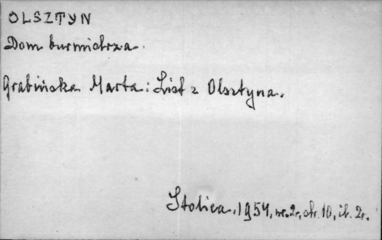 OLSZTYN
Dom burmistrza.
Grabińska Marta: List z Olsztyna.
Stolica, 1954, nr. 2, str. 10, il. 2.